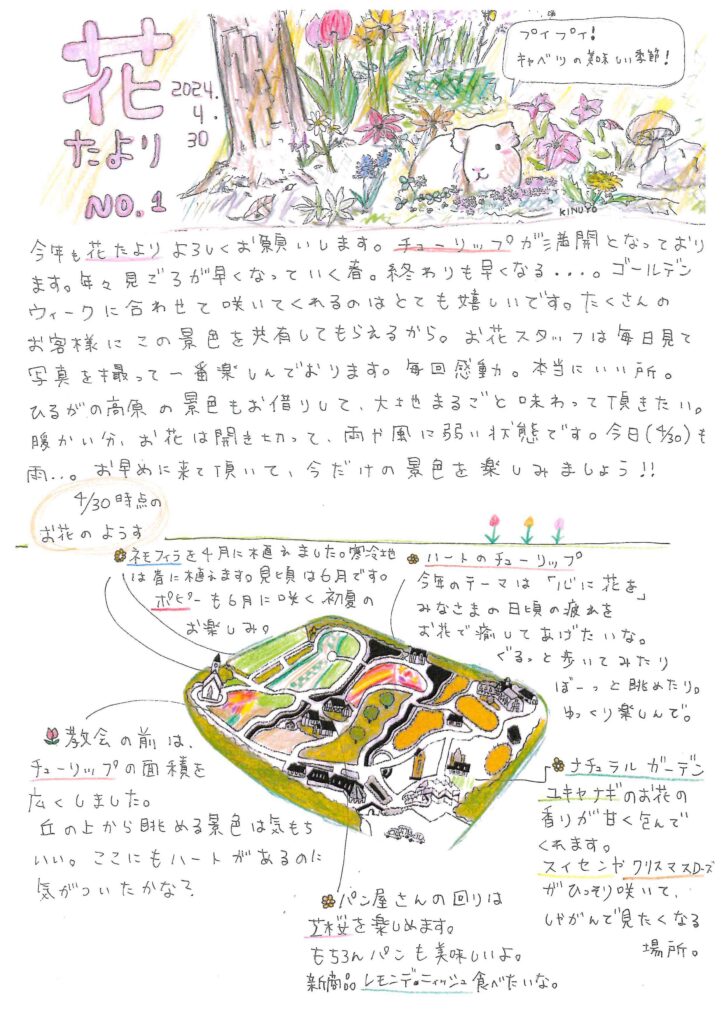 花
たより
NO.1
2024.
4.
30
プイプイ!
キャベツの美味しい季節!
KINUYO
今年も花たよりよろしくお願いします。チューリップが満開となっており
ます。年々見ごろが早くなっていく春。終わりも早くなる...。ゴールデン
ウィークに合わせて咲いてくれるのはとても嬉しいです。たくさんの
お客様にこの景色を共有してもらえるから。お花スタッフは毎日見て
写真を撮って一番楽しんでおります。毎回感動。本当にいい所。
ひるがの高原の景色もお借りして、大地まるごと味わって頂きたい。
暖かい分、お花は開き切って、雨や風に弱い状態です。今日(4/30)も
雨...。お早めに来て頂いて、今だけの景色を楽しみましょう!!
4/30時点の
お花のようす
ネモフィラを4月に植えました。寒冷地
は春に植えます。見頃は6月です。
ポピーも6月に咲く初夏の
お楽しみ。
ハートのチューリップ
今年のテーマは「心に花を」
みなさまの日頃の疲れを
お花で癒してあげたいな。
ぐるっと歩いてみたり
ぼーっと眺めたり。
ゆっくり楽しんで。
教会の前は、
チューリップの面積を
広くしました。
丘の上から眺める景色は気もち
いい。ここにもハートがあるのに
気がついたかな?
ナチュラルガーデン
ユキヤナギのお花の
香りが甘く包んで
くれます。
スイセンやクリスマスローズ
がひっそり咲いて、
しゃがんで見たくなる
場所。
パン屋さんの回りは
芝桜を楽しめます。
もちろんパンも美味しいよ。
新商品レモンデニッシュ食べたいな。